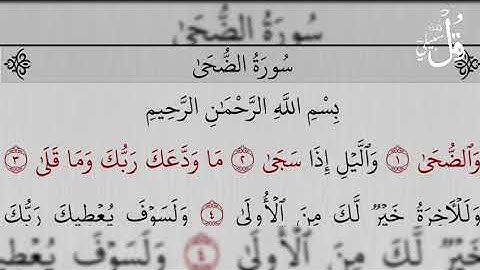 سُورَةُ الضُّحَىٰ
سُورَةُ الضُّحَىٰ
بِسْمِ اللَّهِ الرَّحْمَٰنِ الرَّحِيمِ
وَالضُّحَىٰ ١ وَالَّيْلِ إِذَا سَجَىٰ ٢ مَا وَدَّعَكَ رَبُّكَ وَمَا قَلَىٰ ٣
وَلَلْآخِرَةُ خَيْرٌ لَّكَ مِنَ الْأُولَىٰ ٤ وَلَسَوْفَ يُعْطِيكَ رَبُّكَ
خَيْرٌ لَّكَ مِنَ الْأُولَىٰ ٤ وَلَسَوْفَ يُعْطِ